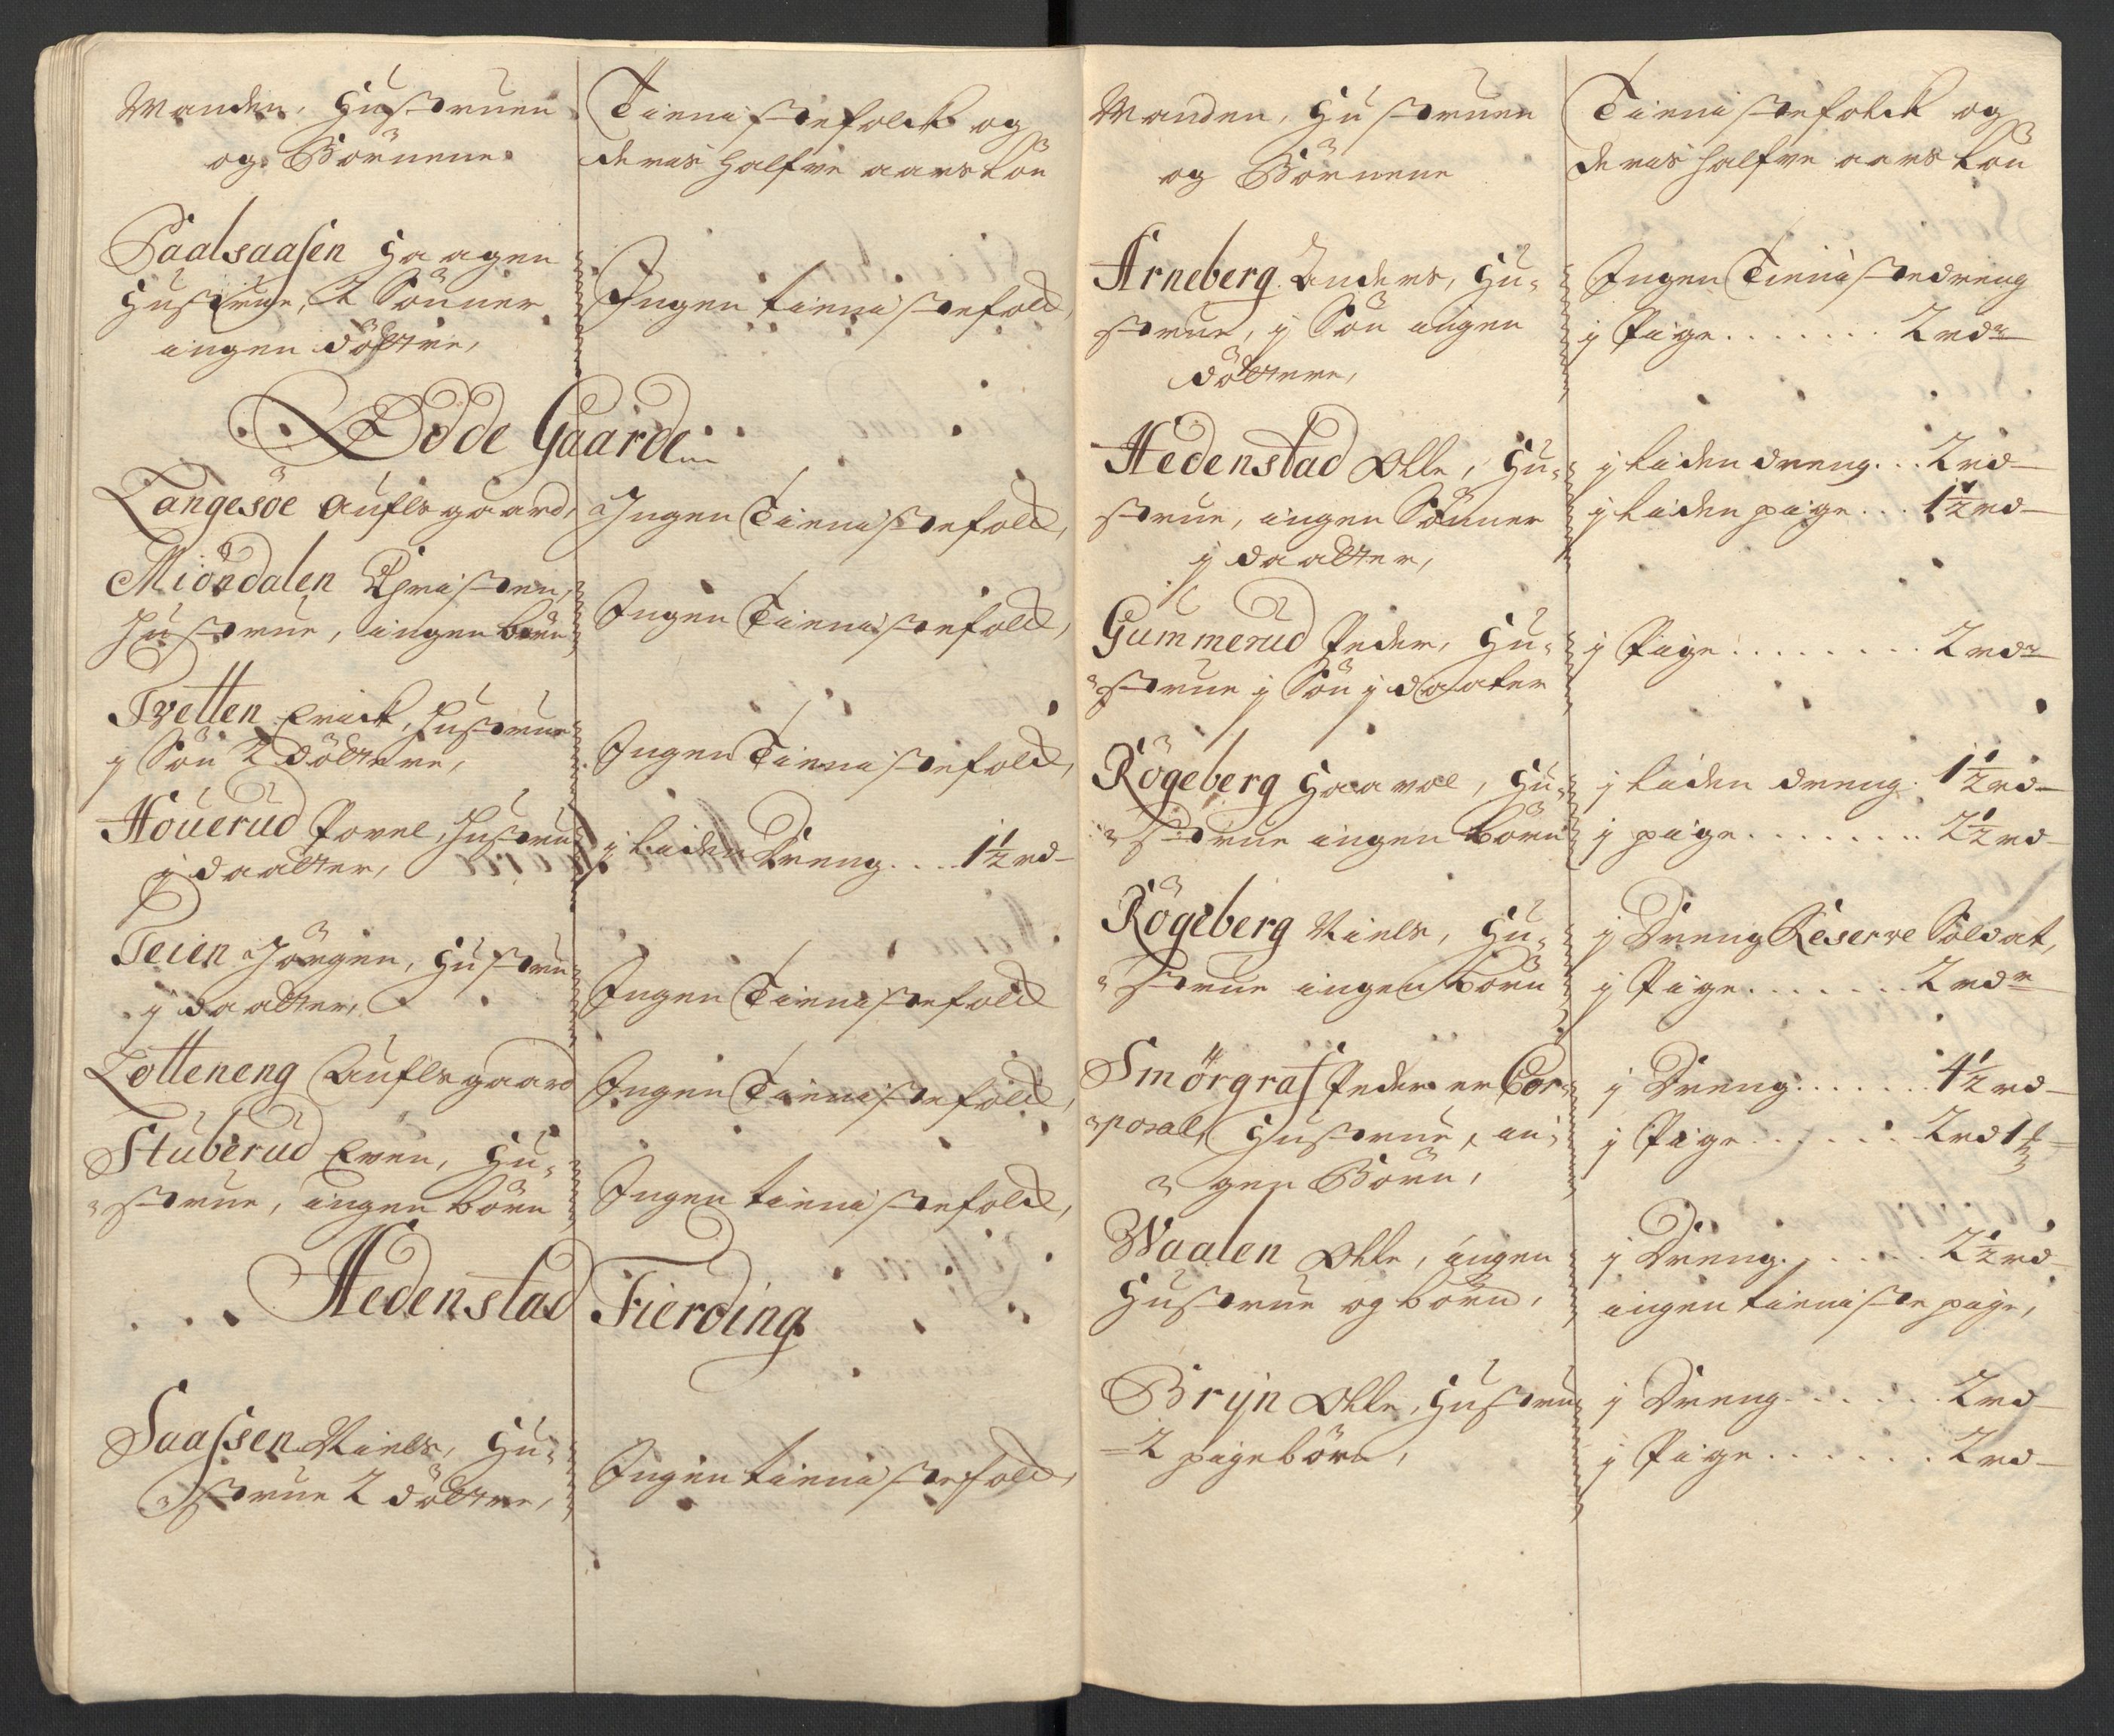 Manden, Hustruen
og Börnene
Tienistefolck og
deris halfve aars Lön
Paalsaasen Haagen
Hustrue, 2 Sönner
ingen döttre,
Ingen tienistefolck,
Öde Gaarde
Langesöe Auflsgaard,
Ingen Tienistefolck,
Miöndalen Christen,
Hustrue, ingen börn
Ingen Tienistefolck,
Tvetten Erick, Hustrue
j Sön 2 döttere,
Ingen Tienistefolck,
Houerud Povel, Hustru
j daatter,
j liden Dreng . . . 1½ rd
Teien Jörgen, Hustru
j daatter,
Ingen Tienistefolck
Lotteneng Auflsgaard
Ingen Tienistefolck,
Stuberud Even, Hu-
strue, ingen börn
Ingen tienistefolck,
Hedenstad Fierding
Saassen Niels, Hu-
strue 2 döttre,
Ingen tienistefolck,
Manden, Hustruen
og Börnene
Tienistefolck og
deris halfve aars Lön
Arneberg Anders, Hu-
strue, j Sön ingen
döttere,
Ingen Tienistedreng
j Pige . . . . . . . 2 rdr
Hedenstad Olle, Hu-
strue, ingen Sönner
j daatter,
j liden dreng . . . 2 rd
j liden pige . . . 1½ rd
Gummerud Peder, Hu-
strue j Sön j daater
j Pige . . . . . . . . 2 rdr
Rögeberg Haavol, Hu-
strue ingen börn
j liden dreng . 1½ rd
j pige . . . . . . . . 2½ rd
Rögeberg Niels, Hu-
strue ingen börn
j Dreng Reserve Soldat,
j Pige . . . . . . . 2 rdr
Smörgraf Peder er Cor-
poral, Hustrue, in-
gen Börn,
j Dreng . . . . . . 4½ rd
j Pige . . . . . . 2 rd 1
Waalen Olle, ingen
Hustrue og börn,
j Dreng . . . . . . 2½ rd
ingen tieniste pige,
Bryn Olle, Hustrue
2 pigebörn,
j Dreng . . . . . . 2 rd
j Pige . . . . . . 2 rd